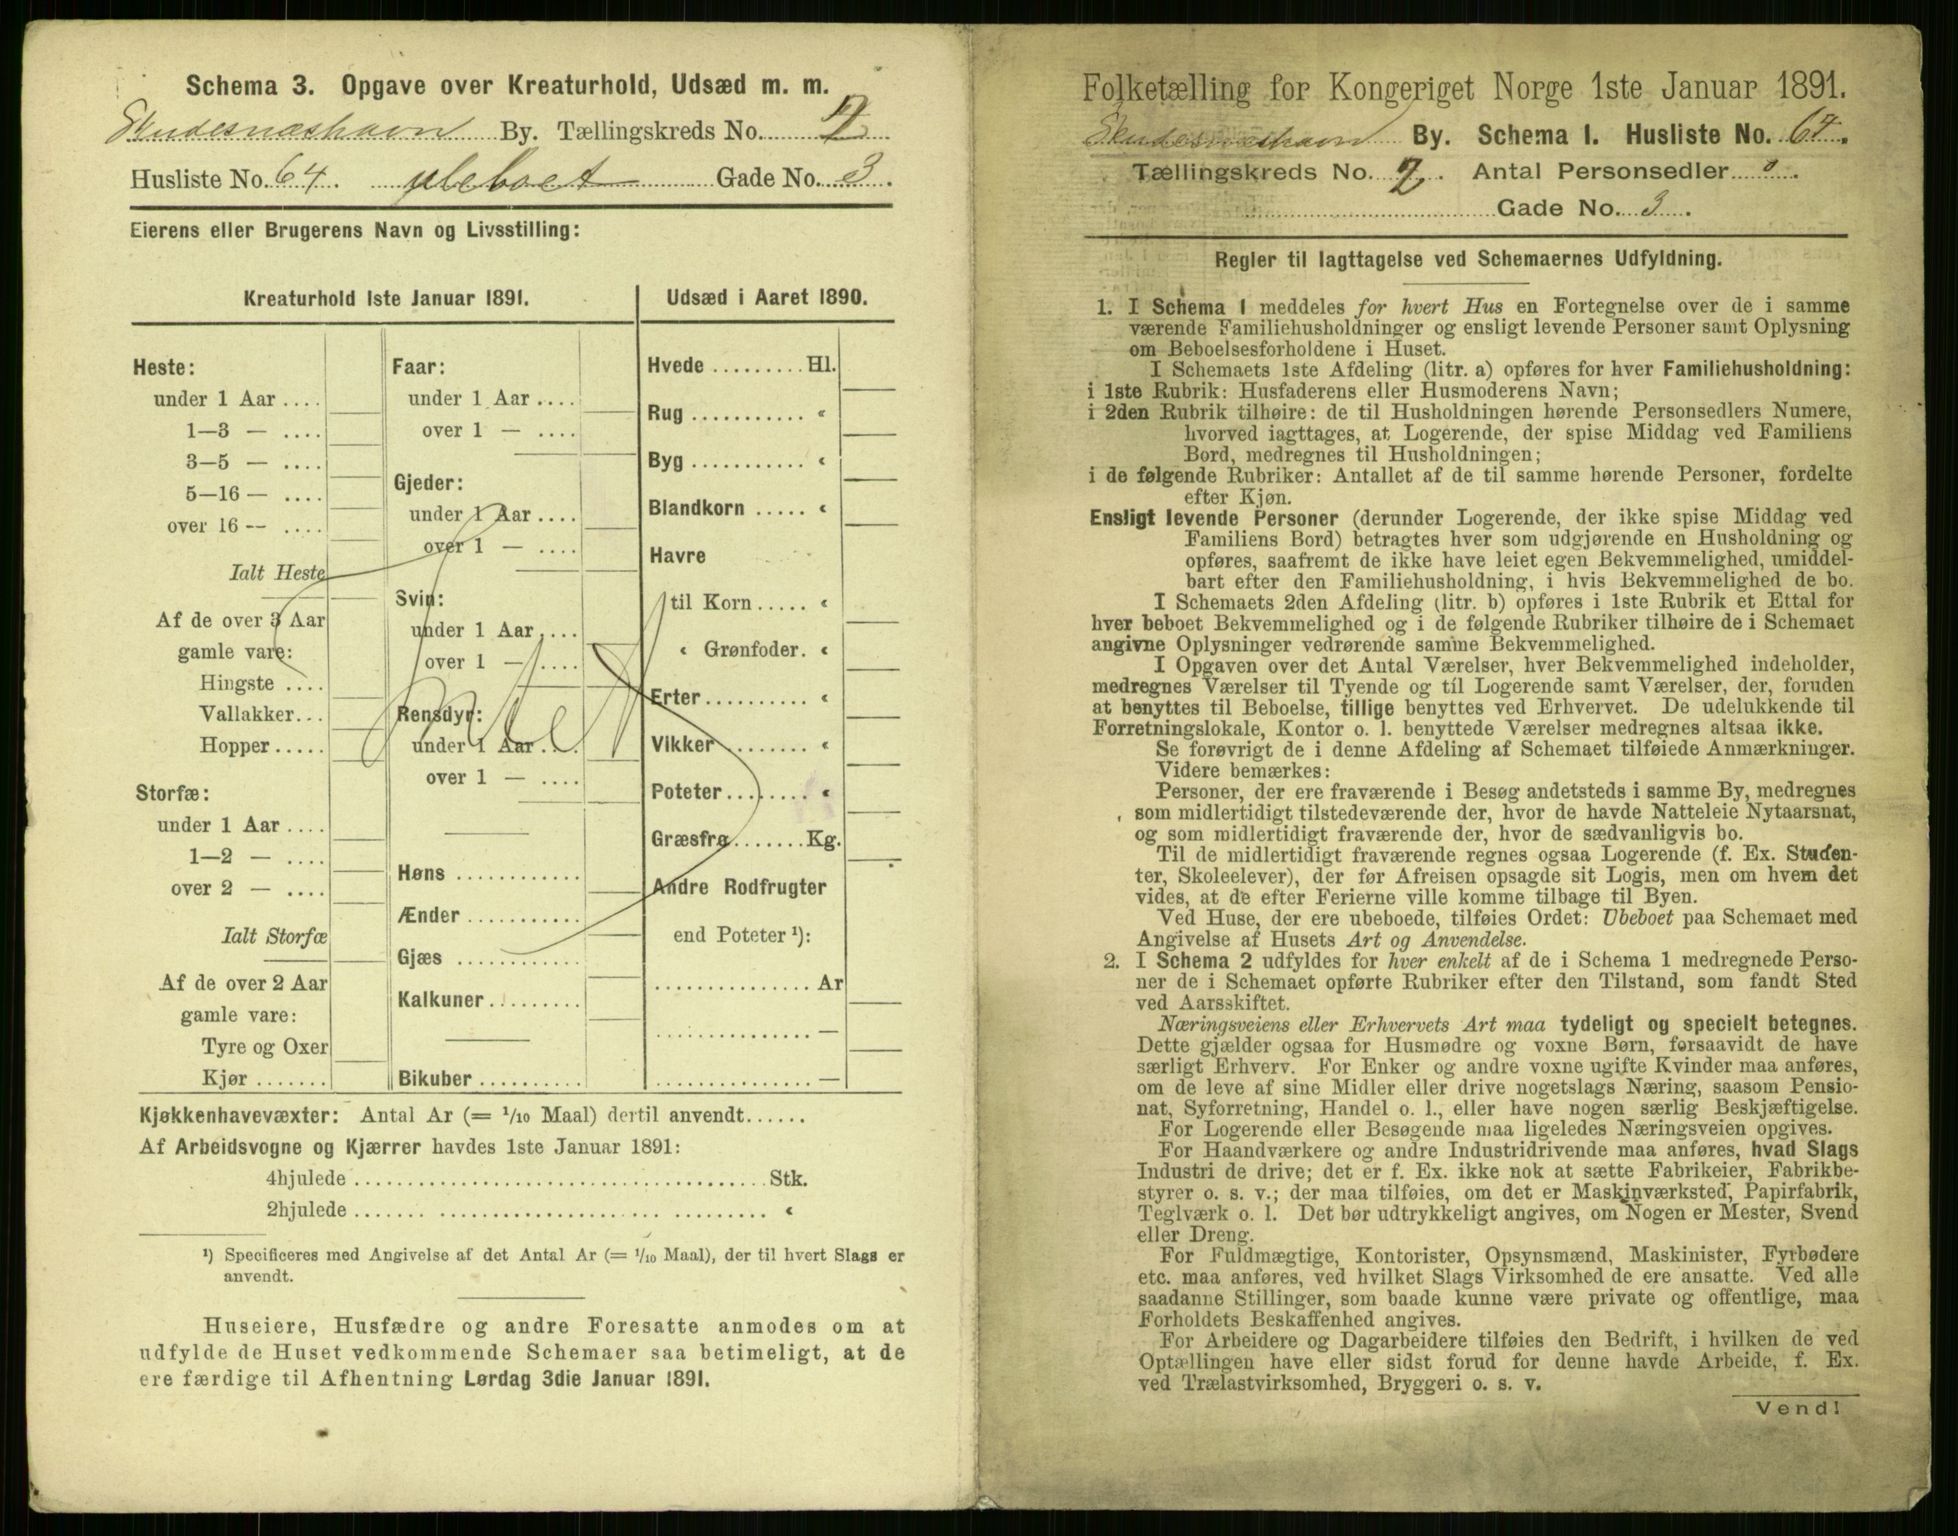 Schema 3. Opgave over Kreaturhold, Udsæd m. m.
Skudesnæshavn By. Tællingskreds No. 2
Husliste No. 64. Ubeboet Gade No. 3.
Eierens eller Brugerens Navn og Livsstilling:
Kreaturhold 1ste Januar 1891.
Heste:
under 1 Aar ....
1—3 — ....
3—5 — ....
5—16 — ....
over 16 — ....
Ialt Heste
Af de over 3 Aar
gamle vare:
Hingste ....
Vallakker...
Hopper .....
Storfæ:
under 1 Aar ....
1—2 — ....
over 2 — ....
Ialt Storfæ
Af de over 2 Aar
gamle vare:
Tyre og Oxer
Kjør .......
Faar:
under 1 Aar ....
over 1 — ....
Gjeder:
under 1 Aar ....
over 1 — ....
Svin:
under 1 Aar ....
over 1 — ....
Rensdyr:
under 1 Aar ....
over 1 — ....
Høns ............
Ænder ...........
Gjæs ............
Kalkuner .........
Bikuber ..........
Intet
Udsæd i Aaret 1890.
Hvede ......... Hl.
Rug ........... «
Byg ........... «
Blandkorn ..... «
Havre
til Korn ..... «
« Grønfoder. «
Erter .......... «
Vikker ........ «
Poteter ........ «
Græsfrø ....... Kg.
Andre Rodfrugter
end Poteter ¹):
............... Ar
............... —
............... —
Kjøkkenhavevæxter: Antal Ar (= 1/10 Maal) dertil anvendt......
Af Arbeidsvogne og Kjærrer havdes 1ste Januar 1891:
4hjulede ....................................... Stk.
2hjulede ....................................... «
¹) Specificeres med Angivelse af det Antal Ar (= 1/10 Maal), der til hvert Slags er
anvendt.
Huseiere, Husfædre og andre Foresatte anmodes om at
udfylde de Huset vedkommende Schemaer saa betimeligt, at de
ere færdige til Afhentning Lørdag 3die Januar 1891.
Folketælling for Kongeriget Norge 1ste Januar 1891.
Skudesnæshavn By. Schema 1. Husliste No. 64.
Tællingskreds No. 2. Antal Personsedler 0.
Gade No. 3.
Regler til Iagttagelse ved Schemaernes Udfyldning.
1. I Schema 1 meddeles for hvert Hus en Fortegnelse over de i samme
værende Familiehusholdninger og ensligt levende Personer samt Oplysning
om Beboelsesforholdene i Huset.
I Schemaets 1ste Afdeling (litr. a) opføres for hver Familiehusholdning:
i 1ste Rubrik: Husfaderens eller Husmoderens Navn;
i 2den Rubrik tilhøire: de til Husholdningen hørende Personsedlers Numere,
hvorved iagttages, at Logerende, der spise Middag ved Familiens
Bord, medregnes til Husholdningen;
i de følgende Rubriker: Antallet af de til samme hørende Personer, fordelte
efter Kjøn.
Ensligt levende Personer (derunder Logerende, der ikke spise Middag ved
Familiens Bord) betragtes hver som udgjørende en Husholdning og
opføres, saafremt de ikke have leiet egen Bekvemmelighed, umiddel-
bart efter den Familiehusholdning, i hvis Bekvemmelighed de bo.
I Schemaets 2den Afdeling (litr. b) opføres i 1ste Rubrik et Ettal for
hver beboet Bekvemmelighed og i de følgende Rubriker tilhøire de i Schemaet
angivne Oplysninger vedrørende samme Bekvemmelighed.
I Opgaven over det Antal Værelser, hver Bekvemmelighed indeholder,
medregnes Værelser til Tyende og til Logerende samt Værelser, der, foruden
at benyttes til Beboelse, tillige benyttes ved Erhvervet. De udelukkende til
Forretningslokale, Kontor o. l. benyttede Værelser medregnes altsaa ikke.
Se forøvrigt de i denne Afdeling af Schemaet tilføiede Anmærkninger.
Videre bemærkes:
Personer, der ere fraværende i Besøg andetsteds i samme By, medregnes
som midlertidigt tilstedeværende der, hvor de havde Natteleie Nytaarsnat,
og som midlertidigt fraværende der, hvor de sædvanligvis bo.
Til de midlertidigt fraværende regnes ogsaa Logerende (f. Ex. Studen-
ter, Skoleelever), der før Afreisen opsagde sit Logis, men om hvem det
vides, at de efter Ferierne ville komme tilbage til Byen.
Ved Huse, der ere ubeboede, tilføies Ordet: Ubeboet paa Schemaet med
Angivelse af Husets Art og Anvendelse.
2. I Schema 2 udfyldes for hver enkelt af de i Schema 1 medregnede Perso-
ner de i Schemaet opførte Rubriker efter den Tilstand, som fandt Sted
ved Aarsskiftet.
Næringsveiens eller Erhvervets Art maa tydeligt og specielt betegnes.
Dette gjælder ogsaa for Husmødre og voxne Børn, forsaavidt de have
særligt Erhverv. For Enker og andre voxne ugifte Kvinder maa anføres,
om de leve af sine Midler eller drive nogetslags Næring, saasom Pensio-
nat, Syforretning, Handel o. l., eller have nogen særlig Beskjæftigelse.
For Logerende eller Besøgende maa ligeledes Næringsveien opgives.
For Haandværkere og andre Industridrivende maa anføres, hvad Slags
Industri de drive; det er f. Ex. ikke nok at sætte Fabrikeier, Fabrikbe-
styrer o. s. v.; der maa tilføies, om det er Maskinværksted, Papirfabrik,
Teglværk o. l. Det bør udtrykkeligt angives, om Nogen er Mester, Svend
eller Dreng.
For Fuldmægtige, Kontorister, Opsynsmænd, Maskinister, Fyrbødere
etc. maa anføres, ved hvilket Slags Virksomhed de ere ansatte. Ved alle
saadanne Stillinger, som baade kunne være private og offentlige, maa
Forholdets Beskaffenhed angives.
For Arbeidere og Dagarbeidere tilføies den Bedrift, i hvilken de ved
Optællingen have eller sidst forud for denne havde Arbeide, f. Ex.
ved Trælastvirksomhed, Bryggeri o. s. v.
Vend!